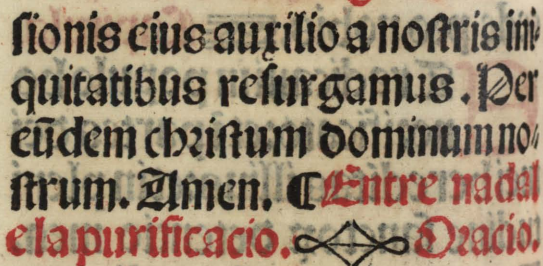 sionis eius auxilio a nostris ini-
quitatibus resurgamus. Per
eũdem christum dominum no-
strum. Amen. ¶ Entre nadal
e la purificacio. Oracio.